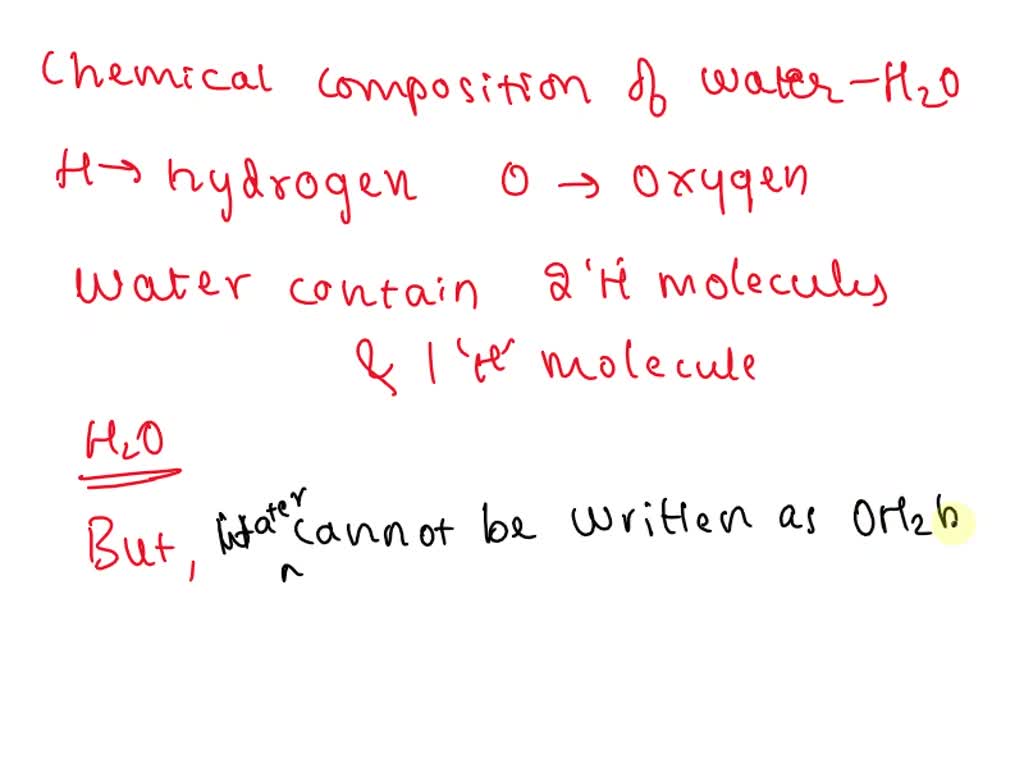 Chemical composition of water - H2O
H → hydrogen O → Oxygen
Water contain 2 'H' molecules
& 1 'H' molecule
H2O
But, Water cannot be written as OH2 b